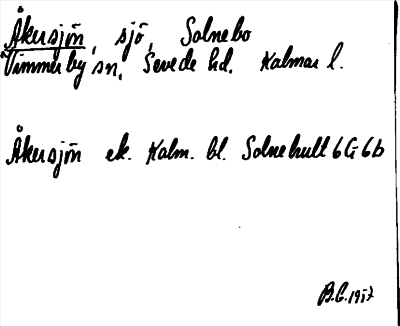 Åkersjön, sjö, Solnebo
Vimmerby sn, Sevede hd. Kalmar l.
Åkersjön ek. Kalm. bl. Solnehult 6G 6b
B.G. 1957